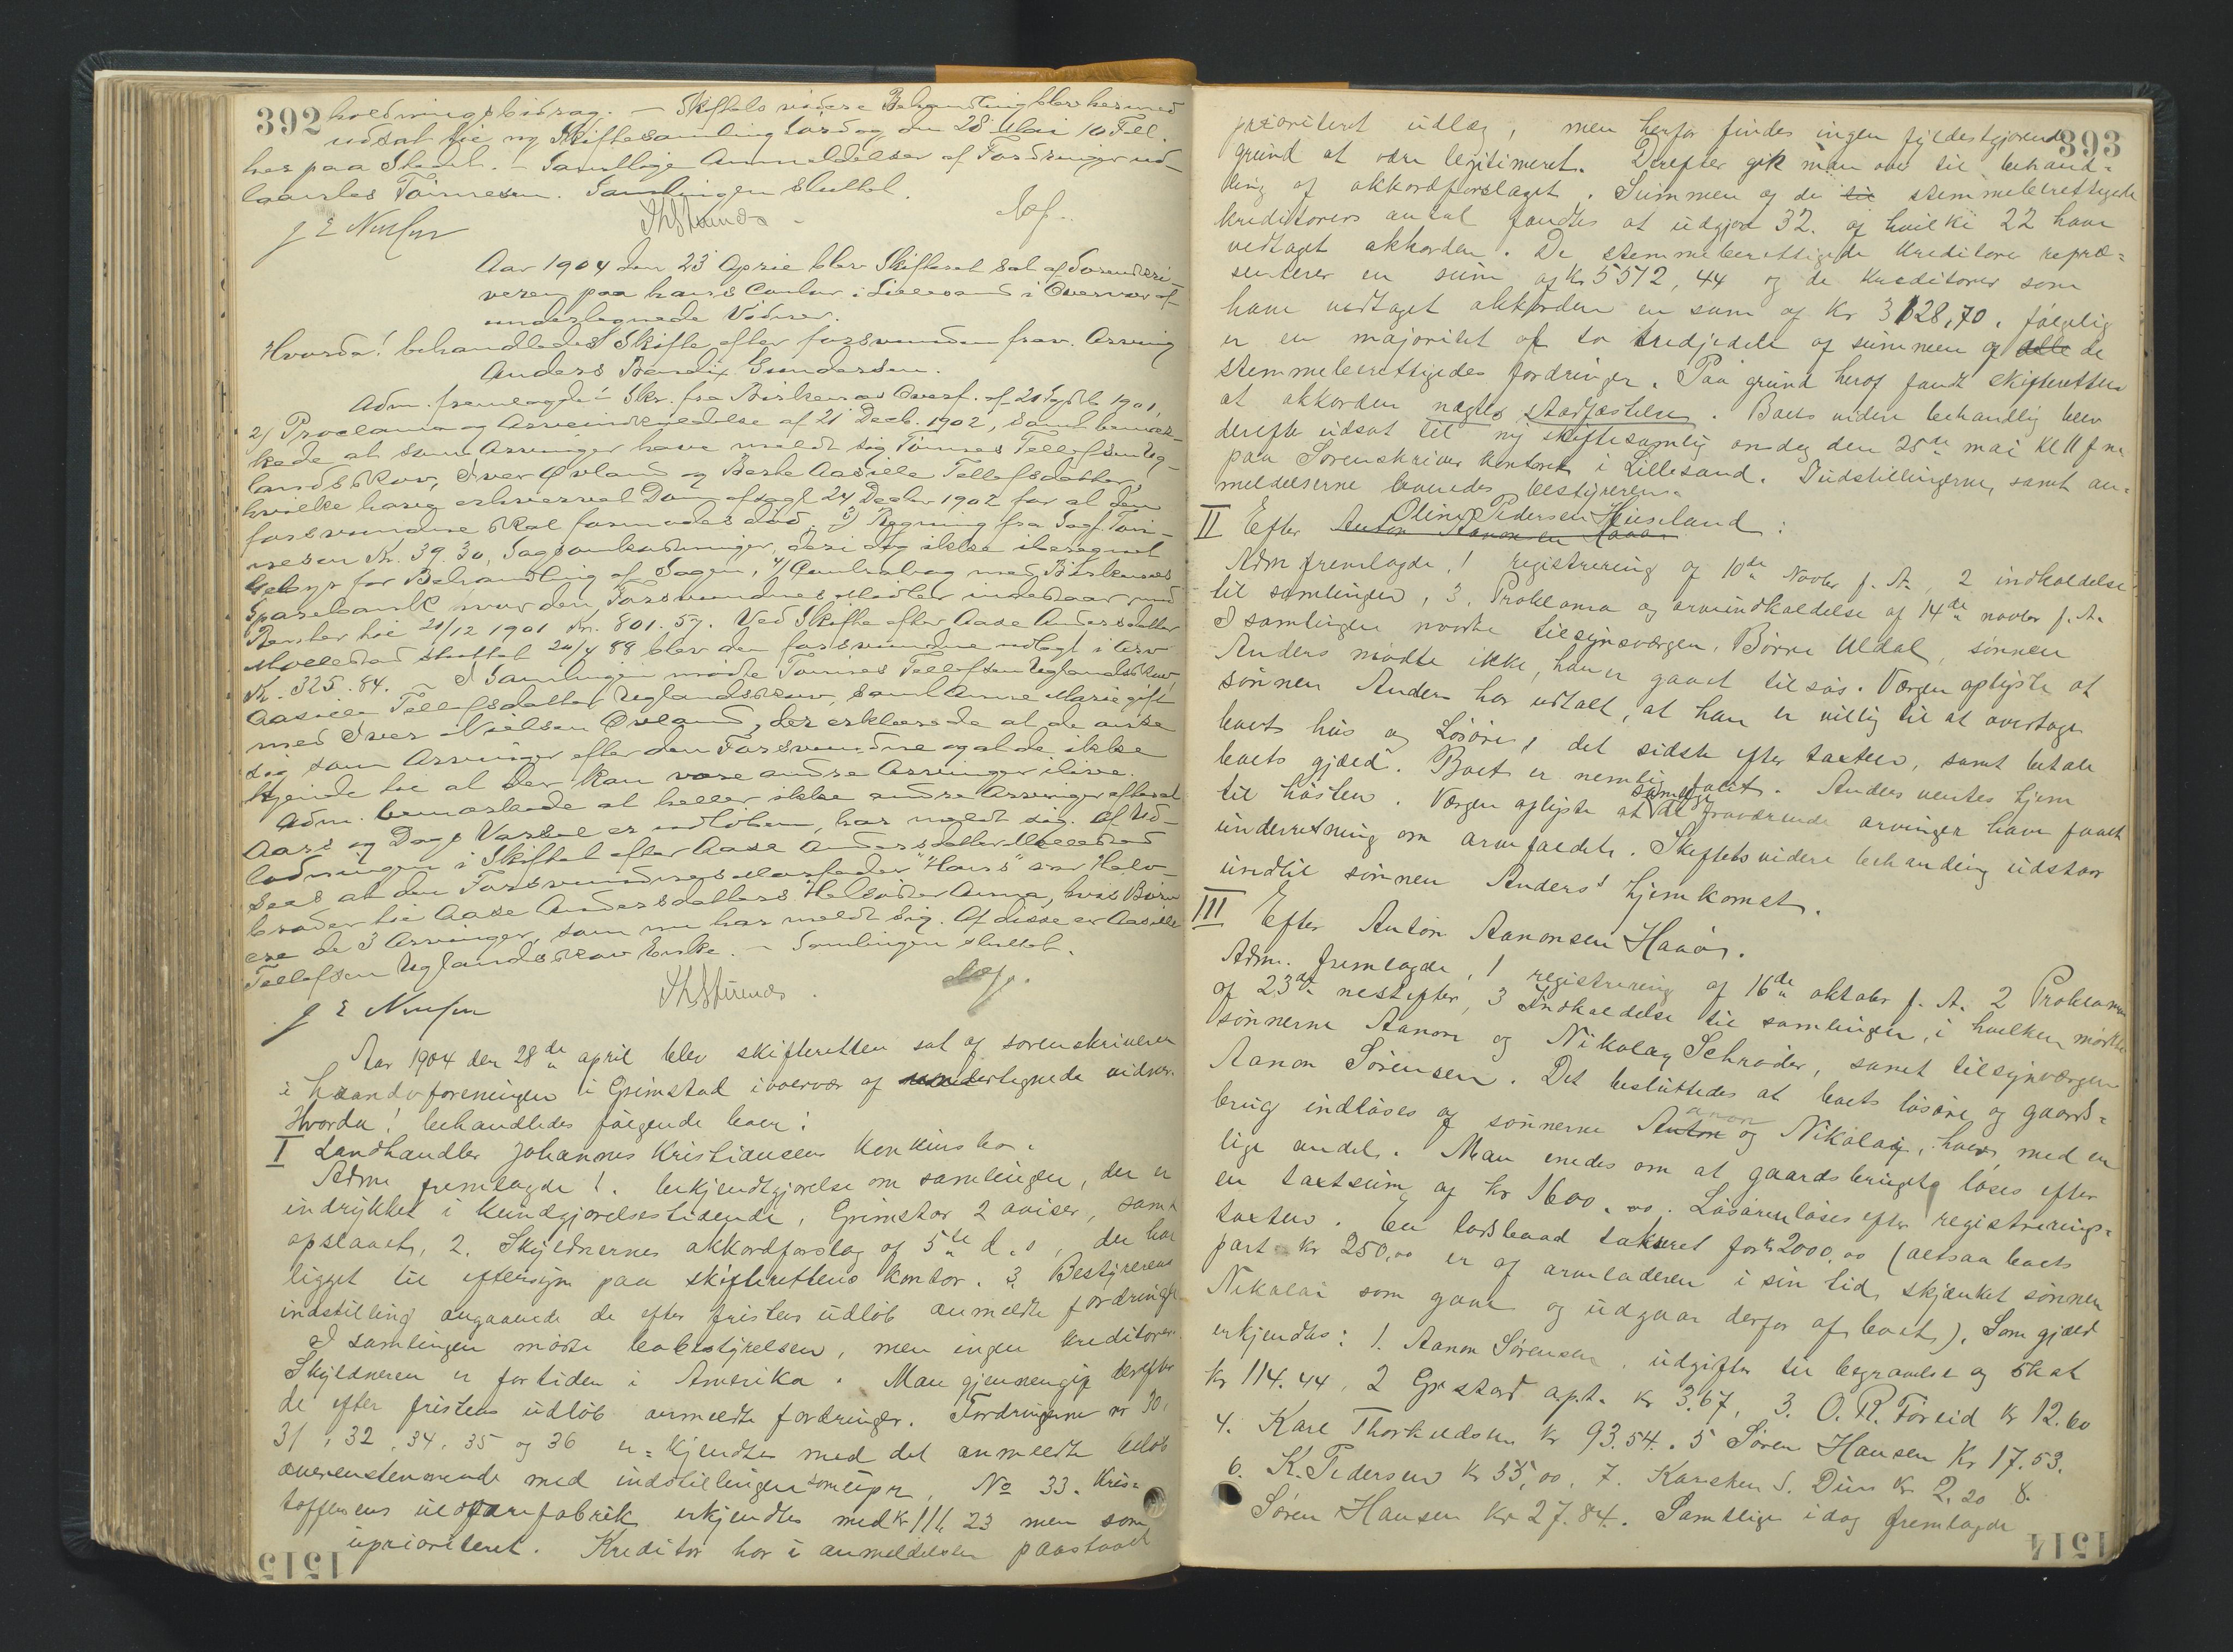 392 holdningsbidrag. — Skiftets videre Behandling blev hermed
udsat til ny Skiftesamling Lørdag den 28 Mai 10 Fell.
her paa Stedet. — Samtlige Anmeldelser af Fordringer ud-
laantes Tønnesen. Samlingen sluttet.
Aar 1904 den 23 April blev Skifteret sat af Sorenskri-
veren paa hans Contor i Lillesand i Overvær af
undertegnede Vidner.
Hvorda! behandledes Skifte efter forsvunden frav. Arving
Anders Bendix Gundersen.
Adm. fremlagde 1 Skr. fra Birkenes Overf. af 20 Septb 1901,
2) Proclama og Arveindkaldelse af 21 Decb. 1902, samt bemær-
kede at som Arvinger have meldt sig Tønnes Tellefsen Ug-
landsskov, Iver Øvland og Berte Aasille Tellefsdatter,
hvilke have erhvervet Dom afsagt 24 Decbr 1902 for at den
forsvundne skal formodes død, 3) Regning fra Sagf. Tøn-
nesen Kr. 39.30, Sagsomkostninger, deri dog ikke iberegnet
Gebyr for Behandling af Sagen, 4) Contrabog med Birkenes
Sparebank hvor den Forsvundnes Midler indestaar med
Renter til 20/12 1901 Kr. 801.57. Ved Skifte efter Aase Andersdatter
Mollestad sluttet 20/4 88 blev den forsvundne udlagt i Arv
Kr. 325.84. — I Samlingen mødte Tønnes Tellefsen Uglandsskov,
Aasille Tellefsdatter Uglandsskov, samt Anne Marie gift
med Iver Nielsen Øvland, der erklærede at de anse
sig som Arvinger efter den Forsvundne og at de ikke
kjende til at der kan være andre Arvinger ilive.
Adm. bemærkede at heller ikke andre Arvinger efterat
Aars og Dags Varsel er udløben, har meldt sig. Af Ud-
lodningen i Skiftet efter Aase Andersdatter Mollestad
sees at den Forsvundnes Morfader "Hans" var Halv-
broder til Aase Andersdatters Halsøster Anna, hvis Børn
ere de 3 Arvinger, som nu har meldt sig. Af disse er Aasille
Tellefsen Uglandsskov Enke. — Samlingen sluttet.
Aar 1904 den 28de april blev skifteretten sat af sorenskriveren
i haandvforeningen i Grimstad i overvær af undertegnede vidner.
Hvorda! behandledes følgende boer:
I Landhandler Johannes Kristiansens Konkursbo.
Adm fremlagde 1. bekjendtgjørelse om samlingen, der er
indrykket i kundgjørelsestidende, Grimstar 2 aviser, samt
opslaaet, 2. Skyldnernes akkordforslag af 5te d. , der har
ligget til eftersyn paa skifterettens kontor. 3. Bestyrerens
indstilling angaaende de efter fristens udløb anmeldte fordringer
I samlingen mødte bobestyrelsen, men ingen kreditorer.
Skyldneren er for tiden i Amerika. Man gjennemgig derefter
de efter fristens udløb anmeldte fordringer. Fordringerne nr 30,
31, 32, 34, 35 og 36 er= kjendtes med det anmeldte beløb
overenstemmende med indstillingen som upr, No 33. Kris=
toffersens uldvarefabrik erkjendtes med kr 111, 23 men som
upriorietet. Kreditor har i anmeldelsen paastaaet
1515
393
prioritert udlæg, men herfor findes ingen fyldestgjørende
grund at være legitimeret. Derefter gik man over til behand=
ling af akkordforslaget. Summen og de til stemmeberettigede
kreditorers antal fandtes at udgjøre 32. af hvilke 22 have
vedtaget akkorden. De stemmeberettigede kreditorer repræ=
senterer en sum af kr 5512, 44 og de kreditorer som
have vedtaget akkorden en sum af kr 3128,70. følgelig
er en majoritet af to tredjedele af summen af de
stemmeberettigedes fordringer. Paa grund heraf fandt skifteretten
at akkorden nægtes stadfæstelse. Boets videre behandlig blev
derefter udsat til ny skiftesamlig onsdag den 25de mai kl 11 fm
paa Sorenskriver kontoret i Lillesand. Indstillingerne, samt an=
meldelserne laanedes bestyreren.
II Efter Anton Aanonsen Haaør Oline Pedersen Huseland:
Adm fremlagde, 1 registrering af 10de Novbr f. A., 2 indkaldelse
til samlingen, 3. Proklama og arveindkaldelse af 14de novbr f. A.
I samlingen mødte tilsynsværgen, Børre Uldal, sønnen
Anders mødte ikke, han er gaaet tilsøs. Værgen oplyste at
sønnen Anders har udtalt, at han er villig til at overtage
boets hus og Løsøre, det sidste efter taxten, samt betale
boets gjæld. Boet er nemlig fallit. Anders ventes hjem
til høsten. Værgen oplyste at samtlige fraværende arvinger have faaet
underretning om arvefaldet. Skiftets videre behandling udstaar
undtil sønnen Anders' hjemkomst.
III Efter Anton Aanonsen Haaør.
Adm. fremlagde, 1 registrering af 16de oktober f. A. 2 Proklama
af 23de nestefter, 3 Indkaldelse til samlingen, i hvilken mødte
sønnerne Aanon og Nikolay Schrøder, samt tilsynværgen
Aanon Sørensen. Det besluttedes at boets løsøre og gaards=
brug indløses af sønnerne Anton anon og Nikolay, hver, med en
lige andel. Man enedes om at gaardsbruget løses efter
en taxtsum af kr 1600.00. Løsøren løses efter registrerings=
taxten. En lodsbaad taksert for kr 2000,00 (altsaa boets
part kr 250,00 er af arveladeren i sin tid, skjænket sønnen
Nikolai som gave og udgaar derfor af boets). Som gjæld
erkjendtes: 1. Aanon Sørensen, udgifter til begravelse og skat
kr 114.44, 2 Grstad apt. kr 3.67, 3. O. R. Føreid kr 12.60
4. Karl Thorkildsen kr 93.54. 5 Søren Hansen Kr 17.53.
6. K. Pedersen kr 35,00, 7. Karsten S. Duus kr 2.20 8.
Søren Hansen kr 27.84. Samtlige idag fremlagde
1514